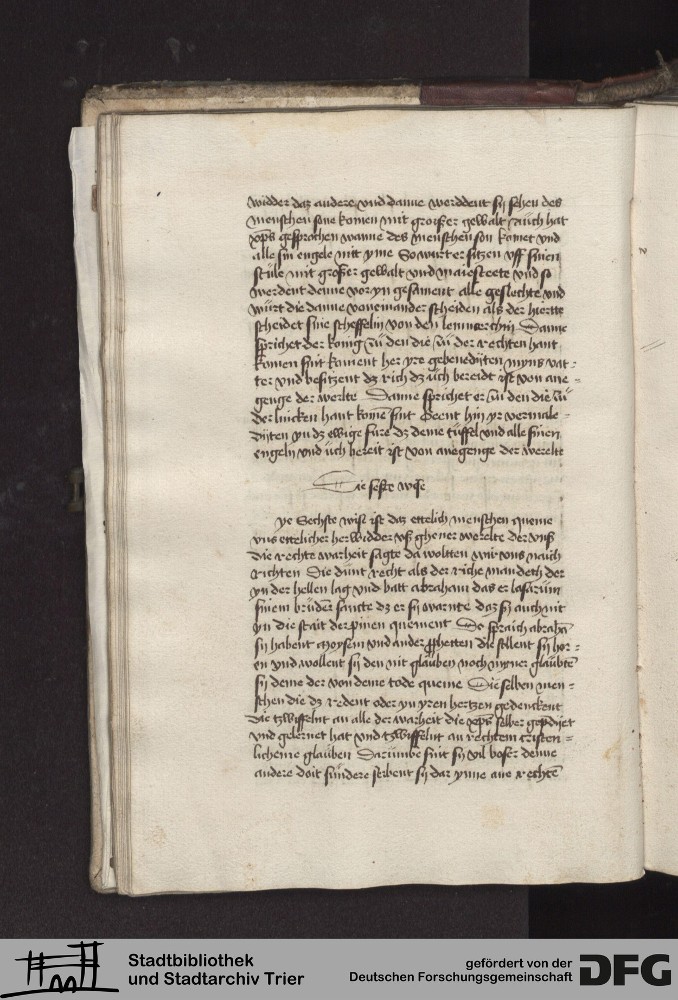 widder daz andere vnd danne werddent sij sehen des
menschen sone komen mit groißer gewalt Auch hat
xp̄s gesprochen wanne des menschen son komet vnd
alle sin engele mit yme So wirt er sitzen vff sinen
stule mit großer gewalt vnd maiesteete vnd so
werdent denne vor yn gesament alle geslechte vnd
wurt die danne voneinander scheiden als der hiertte
scheidet sine scheffelin von den Danne
sprichet der konig zü den die zü der rechten hant
komen sint koment her yre gebenedijten myns vat-
ter vnd besitzent dz rich dz uch bereidt ist von ane-
genge der werlte Danne sprichet er zü den die zü
der lincken hant komē sint Geent hin yr vermale-
dijten yn dz ewige fure dz deme tüffel vnd alle sinen
engeln vnd uch bereit ist von anegenge der werelte
Die seste wise
ye Sechste wise ist daz ettelich menschen queme
vns ettelicher herwidder vß ghener werelte der vnß
die rechte warheit sagte da woltten wir vns nach
richten Die dünt recht als der riche man deth der
yn der hellen lag vnd batt abraham das er lasarum
sinem brüder sante dz er sij warnte daz sij auch nit
yn die stait der pinen quement Do spraich abrahā
sij habent moysem vnd ander ꝓphetten die sellent sij hor-
en vnd wollent sij den nit glauben noch mynner glaubtē
sij deme der von deme tode queme Die selben men-
schen die dz redent oder yn yren hertzen gedenckent
die tzwiffelnt an alle der warheit die xp̄s selber geprediget
vnd gelernet hat vnd tzwiffelnt an rechtem cristen-
licheme glauben Darumbe sint sij vil boser denne
andere doit sundere sterbent sij dar ynne ane rechtē
Stadtbibliothek
und Stadtarchiv Trier
gefördert von der
Deutschen Forschungsgemeinschaft
DFG